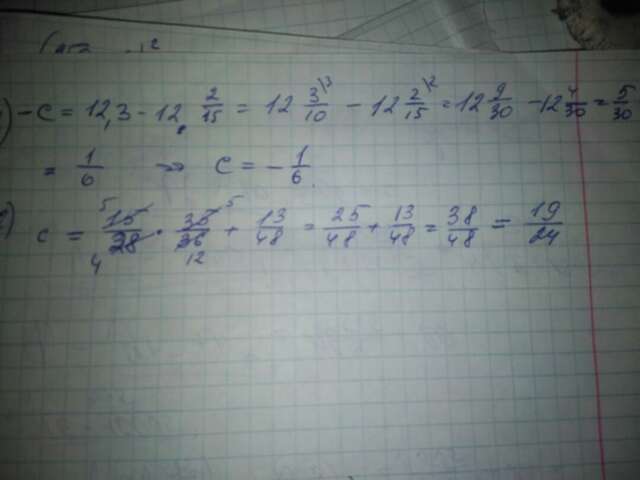 ) -c = 12,3 - 12 2/15 = 12 3/10 \3 - 12 2/15 \2 = 12 9/30 - 12 4/30 = 5/30
= 1/6 => c = - 1/6
) c = 5 15/28 4 · 35/36 5 12 + 13/48 = 25/48 + 13/48 = 38/48 = 19/24